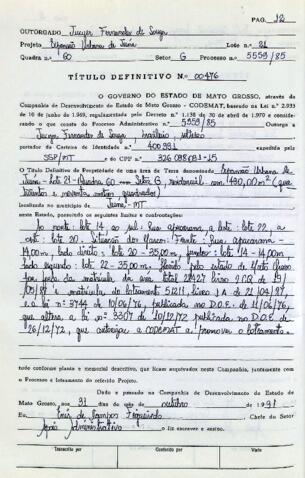 PAG. 12
OUTORGADO Juarez Fernandes de Souza
Projeto Expansão Urbana de Juina Lote n.º 21
Quadra n.º 60 Setor G Processo n.º 5559/85
TÍTULO DEFINITIVO N.º 00476
O GOVERNO DO ESTADO DE MATO GROSSO, através da
Companhia de Desenvolvimento do Estado de Mato Grosso - CODEMAT, baseado na Lei n.º 2.033
de 10 de junho de 1969, regulamentada pelo Decreto n.º 1.138 de 30 de abril de 1970 e considerando
o que consta do Processo Administrativo n.º 5559/85 Outorga a
Fernandes de Souza, brasileiro, solteiro
portador da Carteira de Identidade n.º 400.931 expedida pela
SSP/MT e do CPF n.º 326098081-15
O Título Definitivo de Propriedade de uma área de Terra denominada Expansão Urbana de
Juina - Lote 21 - Quadra 60 - Setor G, residencial com 490,00m² (quatrocentos
e noventa metros quadrados)
localizada no município de Juina - MT
neste Estado, possuindo os seguintes limites e confrontações:
Ao norte: lote 14, ao sul: Rua, a leste: lote 22, a
oeste: lote 20. Situação dos Marcos: Frente: Rua -
14,00m, lado direito: lote 20 - 35,00m, fundos: lote 14 - 14,00m
lado esquerdo: lote 22 - 35,00m. pelo estado de Mato Grosso
por da matrícula da área total livro 2 C.R. de 19/
e matrícula do loteamento 51211, livro 1 A de 21/04/87
e a lei n.º 3744 de 10/06/76, publicada no D.O.E. de 11/06/76,
que altera a lei n.º 3307 de 20/12/72 publicada no D.O.E. de
26/12/72, que autoriza a CODEMAT a promover o loteamento.
tudo conforme planta e memorial descritivo, que ficam arquivados nesta Companhia, juntamente com
o Processo e loteamento do referido Projeto.
Dado e passado na Companhia de Desenvolvimento do Estado de
Mato Grosso, aos 31 dias do mês de outubro de 1991
Eu, de Campos Figueiredo Chefe do Setor
Apoio Administrativo o fiz escrever e assino.
Transcrito por Conferido por Visto